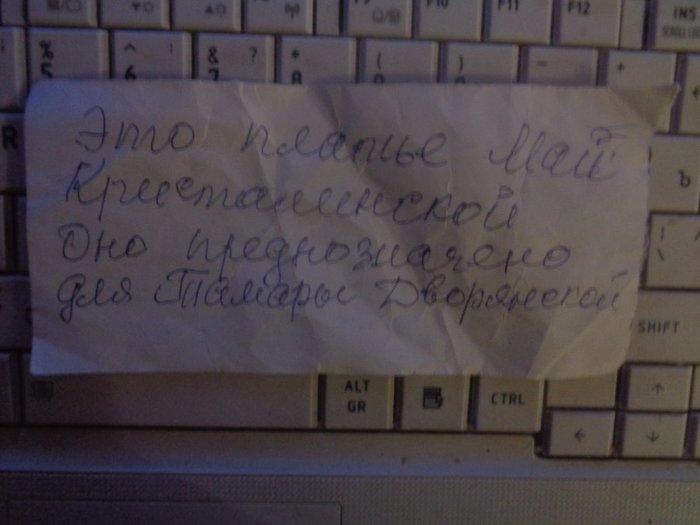 F10 F11 F12 INS
SCROLL LOCK
% 5 ^ 6 & 7 ? * 8 ( ) _ +
Это платье Май
R
Кристалинской
Ъ
Оно предн озночено
для Тамары Дворянской
SHIFT
ALT GR CTRL